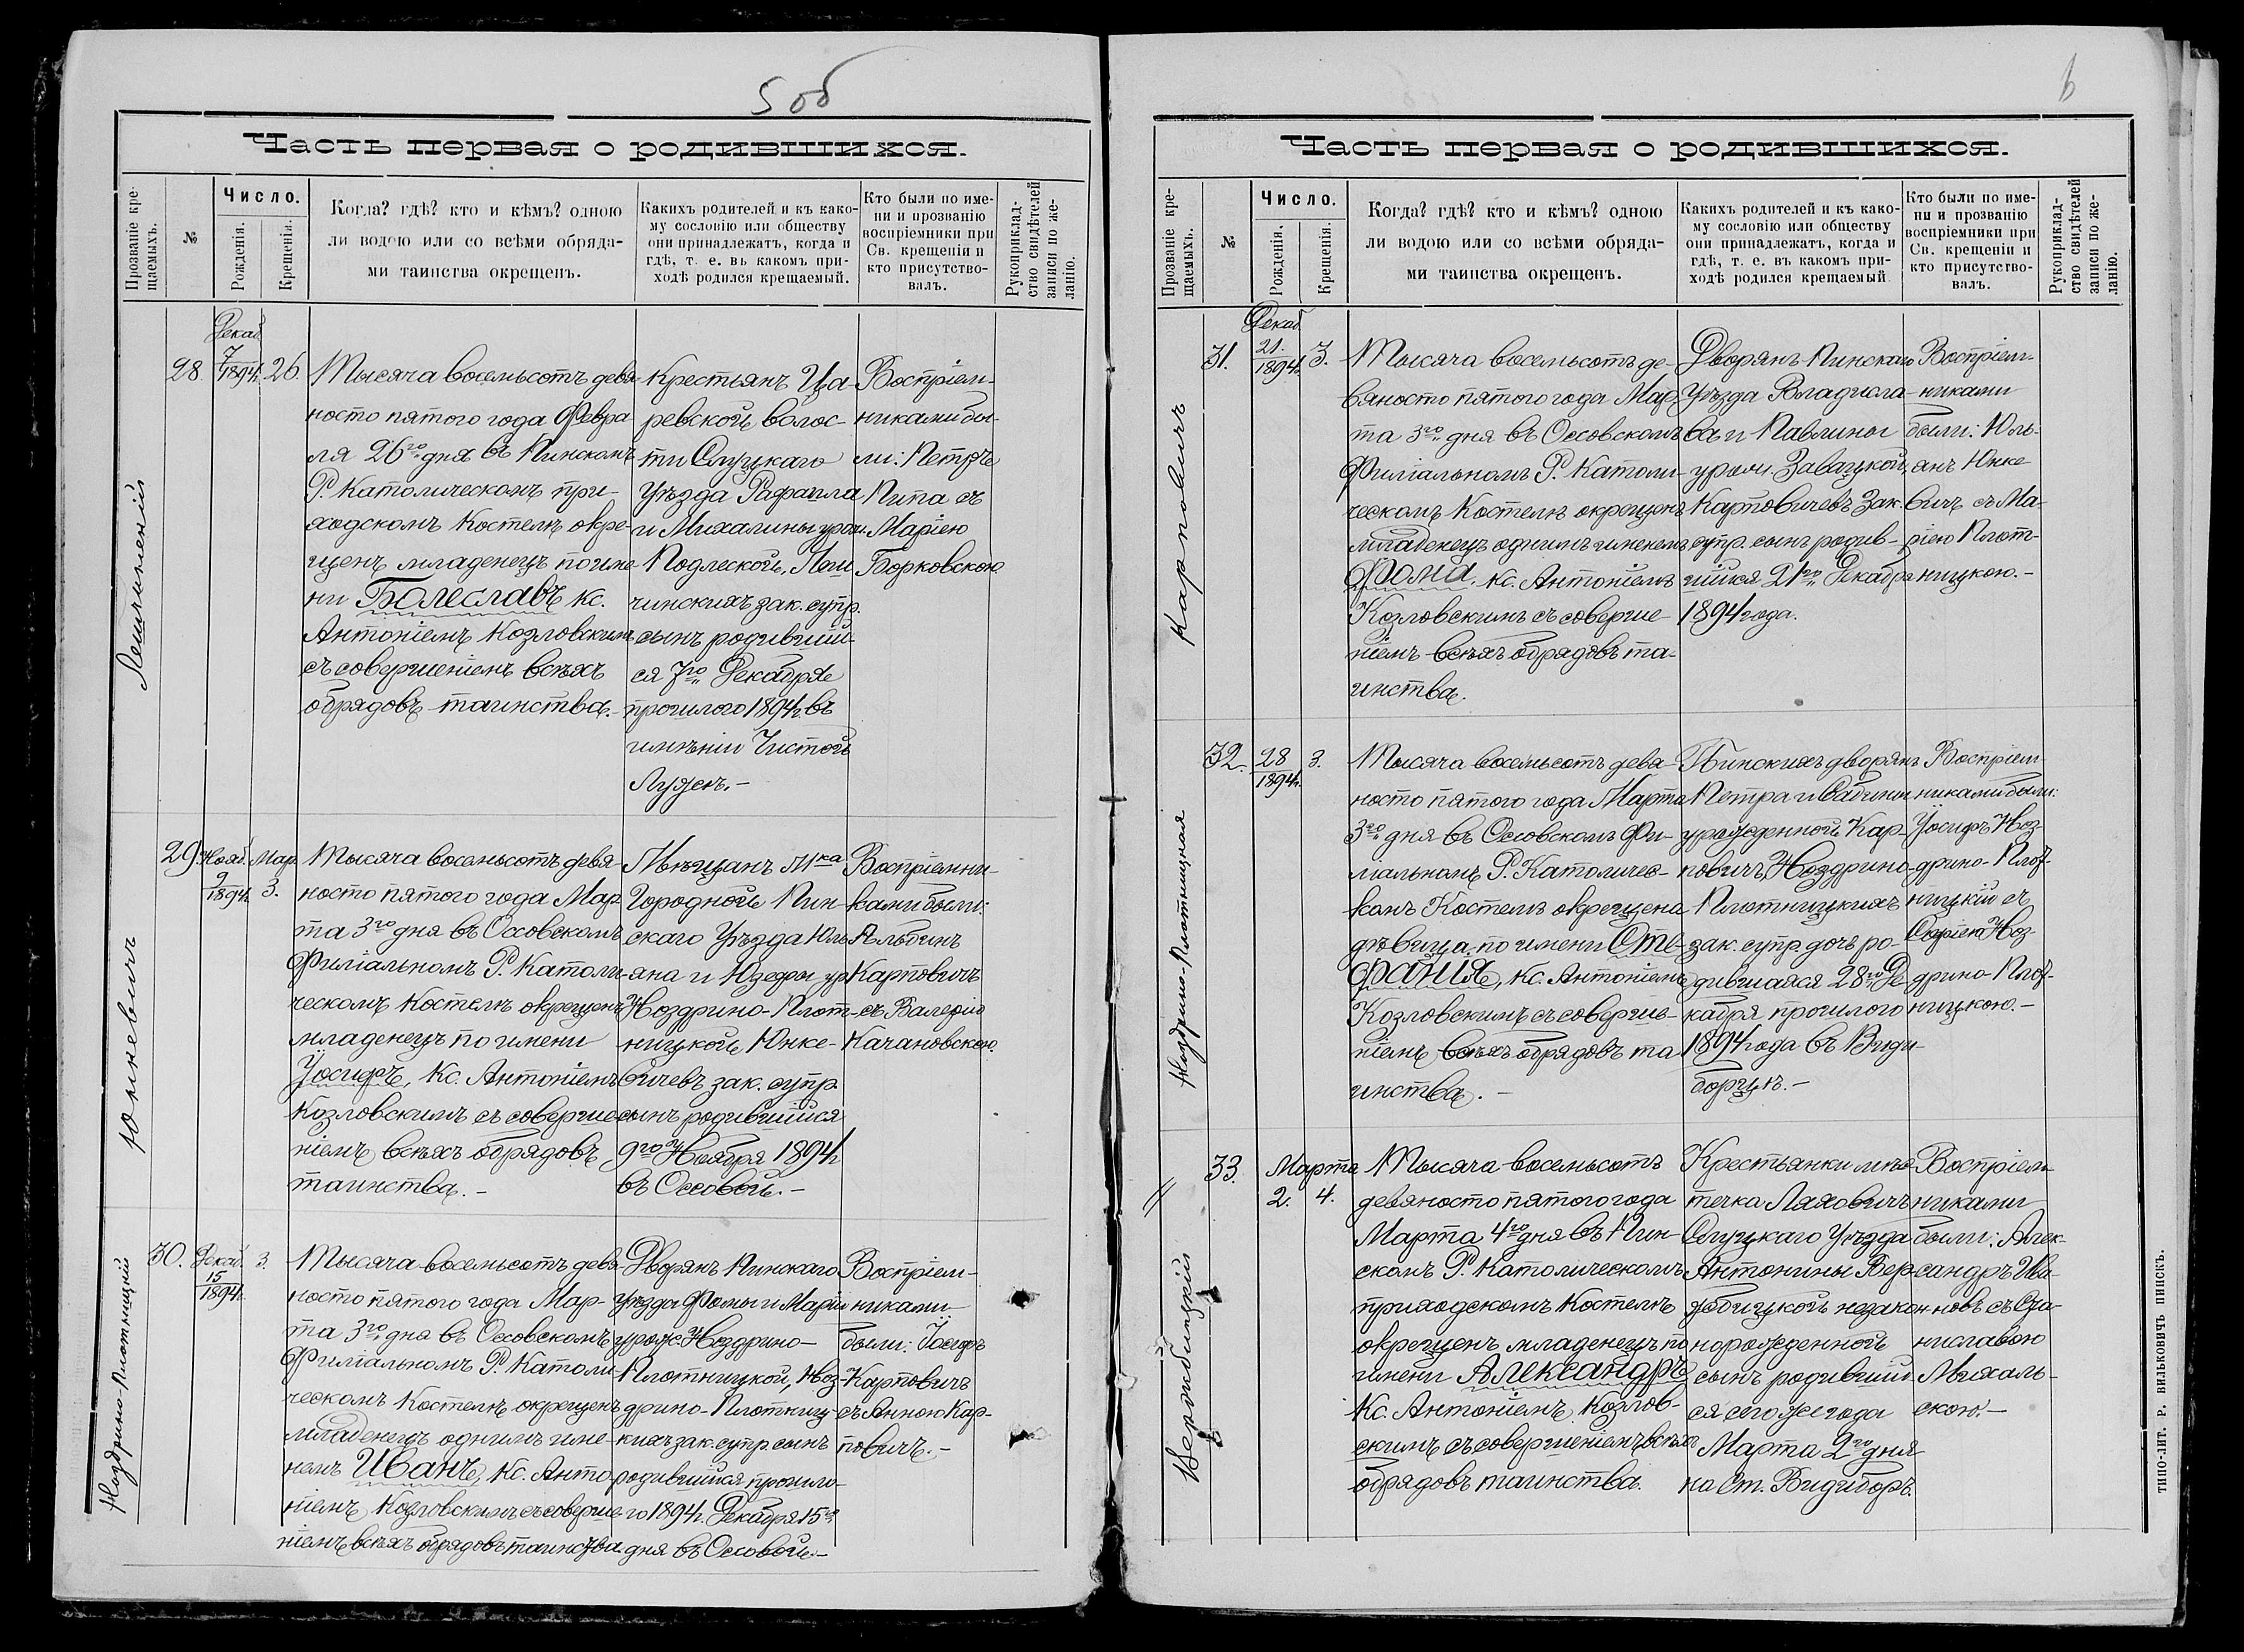 5 об
Часть первая о родившихся.
Прозваніе кре-
щаемыхъ.
№
Число.
Рожденія.
Крещенія.
Когда? гдѣ? кто и кѣмъ? одною
ли водою или со всѣми обряда-
ми таинства окрещенъ.
Какихъ родителей и къ како-
му сословію или обществу
они принадлежатъ, когда и
гдѣ, т. е. въ какомъ при-
ходѣ родился крещаемый.
Кто были по име-
ни и прозванію
воспріемники при
Св. крещеніи и
кто присутство-
валъ.
Рукоприклад-
ство свидѣтелей
записи по же-
ланію.
28.
Декаб
7
1894г.
26
Тысяча восемьсотъ девя-
носто пятого года Февра
ля 26го дня въ Пинскомъ
Р. Католическомъ при-
ходскомъ Костелѣ окре-
щенъ младенецъ по име
ни Болеславъ кс.
Антоніемъ Козловскимъ
съ совершеніемъ всѣхъ
обрядовъ таинства.-
Крестьянъ Ца-
ревской волос-
ти Слуцкаго
Уѣзда Рафаила
и Михалины урож.
Подлеской, Леш
чинскихъ зак. супр.
сынъ родивший-
ся 7го Декабря
прошлого 1894г. въ
имѣніи Чистой
Лужен.-
Воспріем-
никами бы-
ли: Петръ
Пипа съ
Маріею
Борковскою
29.
Нояб.
9
1894г.
Мар.
3.
Юнкевичъ
Тысяча восемьсотъ девя-
носто пятого года Мар
та 3го дня въ Оссовскомъ
Филіальномъ Р. Католи-
ческомъ Костелѣ окрещенъ
младенецъ по имени
Іосифъ, Кс. Антоніемъ
Козловскимъ съ соверше-
ніемъ всѣхъ обрядовъ
таинства.-
Мѣщанъ М-ка
Городной Пин-
скаго Уѣзда Юль
яна и Юзефы ур.
Ноздрино-Плот-
ницкой Юнке-
вичевъ зак. супр.
сынъ родившійся
9го Ноября 1894г
въ Оссовой.-
Воспріемни-
ками были:
Альбинъ
Карповичъ
съ Валерію
Качановскою.
30.
Декаб.
15
1894г.
3.
Ноздрино-Плотницкій
Тысяча восемьсотъ девя-
носто пятого года Мар-
та 3го дня въ Оссовскомъ
Филіальномъ Р. Католи-
ческомъ Костелѣ окрещенъ
младенецъ однимъ име-
немъ Иванъ, Кс. Анто-
ніемъ Козловскимъ съ соверше-
ніемъ всѣхъ обрядовъ таинства
Дворянъ Пинскаго
Уѣзда Фомы и Маріи
урож. Ноздрино-
Плотницкой, Ноз-
дрино-Плотниц-
кихъ зак. супр. сынъ
родившійся прошло-
го 1894г. Декабря 15го
дня въ Оссовой.-
Воспріем-
никами
были: Іосифъ
Карповичъ
съ Анною Кар-
повичъ.-
6
Часть первая о родившихся.
Прозваніе кре-
щаемыхъ.
№
Число.
Рожденія.
Крещенія.
Когда? гдѣ? кто и кѣмъ? одною
ли водою или со всѣми обряда-
ми таинства окрещенъ.
Какихъ родителей и къ како-
му сословію или обществу
они принадлежатъ, когда и
гдѣ, т. е. въ какомъ при-
ходѣ родился крещаемый
Кто были по име-
ни и прозванію
воспріемники при
Св. крещеніи и
кто присутство-
валъ.
Рукоприклад-
ство свидѣтелей
записи по же-
ланію.
Карповичъ
31.
Декаб.
21.
1894г.
3.
Тысяча восемьсотъ де-
вяносто пятого года Мар-
та 3го дня въ Оссовскомъ
Филіальномъ Р. Католи-
ческомъ Костелѣ окрещенъ
младенецъ однимъ именемъ
Фома, Кс. Антоніемъ
Козловскимъ съ соверше-
ніемъ всѣхъ обрядовъ та-
инства.
Дворянъ Пинскаго
Уѣзда Владисла-
ва и Павлины
урож. Завацкой,
Карповичевъ зак.
супр. сынъ родив-
шійся 21го Декабря
1894 года.
Воспріем-
никами
были: Юль-
анъ Юнке
вичъ съ Ма-
ріею Плот-
ницкою.-
Ноздрино-Плотницкая
32.
28
1894г.
3.
Тысяча восемьсотъ девя-
носто пятого года Марта
3го дня въ Оссовскомъ Фи-
ліальномъ Р. Католичес-
комъ Костелѣ окрещена
дѣвица по имени Сте-
фанія, Кс. Антоніемъ
Козловскимъ съ соверше-
ніемъ всѣхъ обрядовъ та
инства.-
Пинскихъ дворянъ
Петра и Сабины
урожденной Кар-
повичъ, Ноздрино-
Плотницкихъ
зак. супр. дочь ро-
дившаяся 28го Де-
кабря прошлого
1894 года въ Види
борцѣ.-
Воспріем-
никами были:
Іосифъ Ноз-
дрино-Плот-
ницкій съ
Софіею Ноз-
дрино-Плот-
ницкою.-
33.
Марта
2.
4.
Вержбицкій
Тысяча восемьсотъ
девяносто пятого года
Марта 4го дня въ Пин-
скомъ Р. Католическомъ
приходскомъ Костелѣ
окрещенъ младенецъ по
имени Александръ
Кс. Антоніемъ Козлов-
скимъ съ совершеніемъ всѣхъ
обрядовъ таинства.
Крестьянки мѣс-
течка Ляховичъ
Слуцкаго Уѣзда
Антонины Вер-
жбицкой незакон-
норожденной
сынъ родивший-
ся сего же года
Марта 2го дня
на Ст. Видиборъ.
Воспріем-
никами
были: Алек-
сандръ Ива-
новъ съ Ста-
ниславою
Михаль-
скою.-
ТИПО-ЛИТ. Р. ВИЛЬКОВИЧЪ ПИНСКЪ.